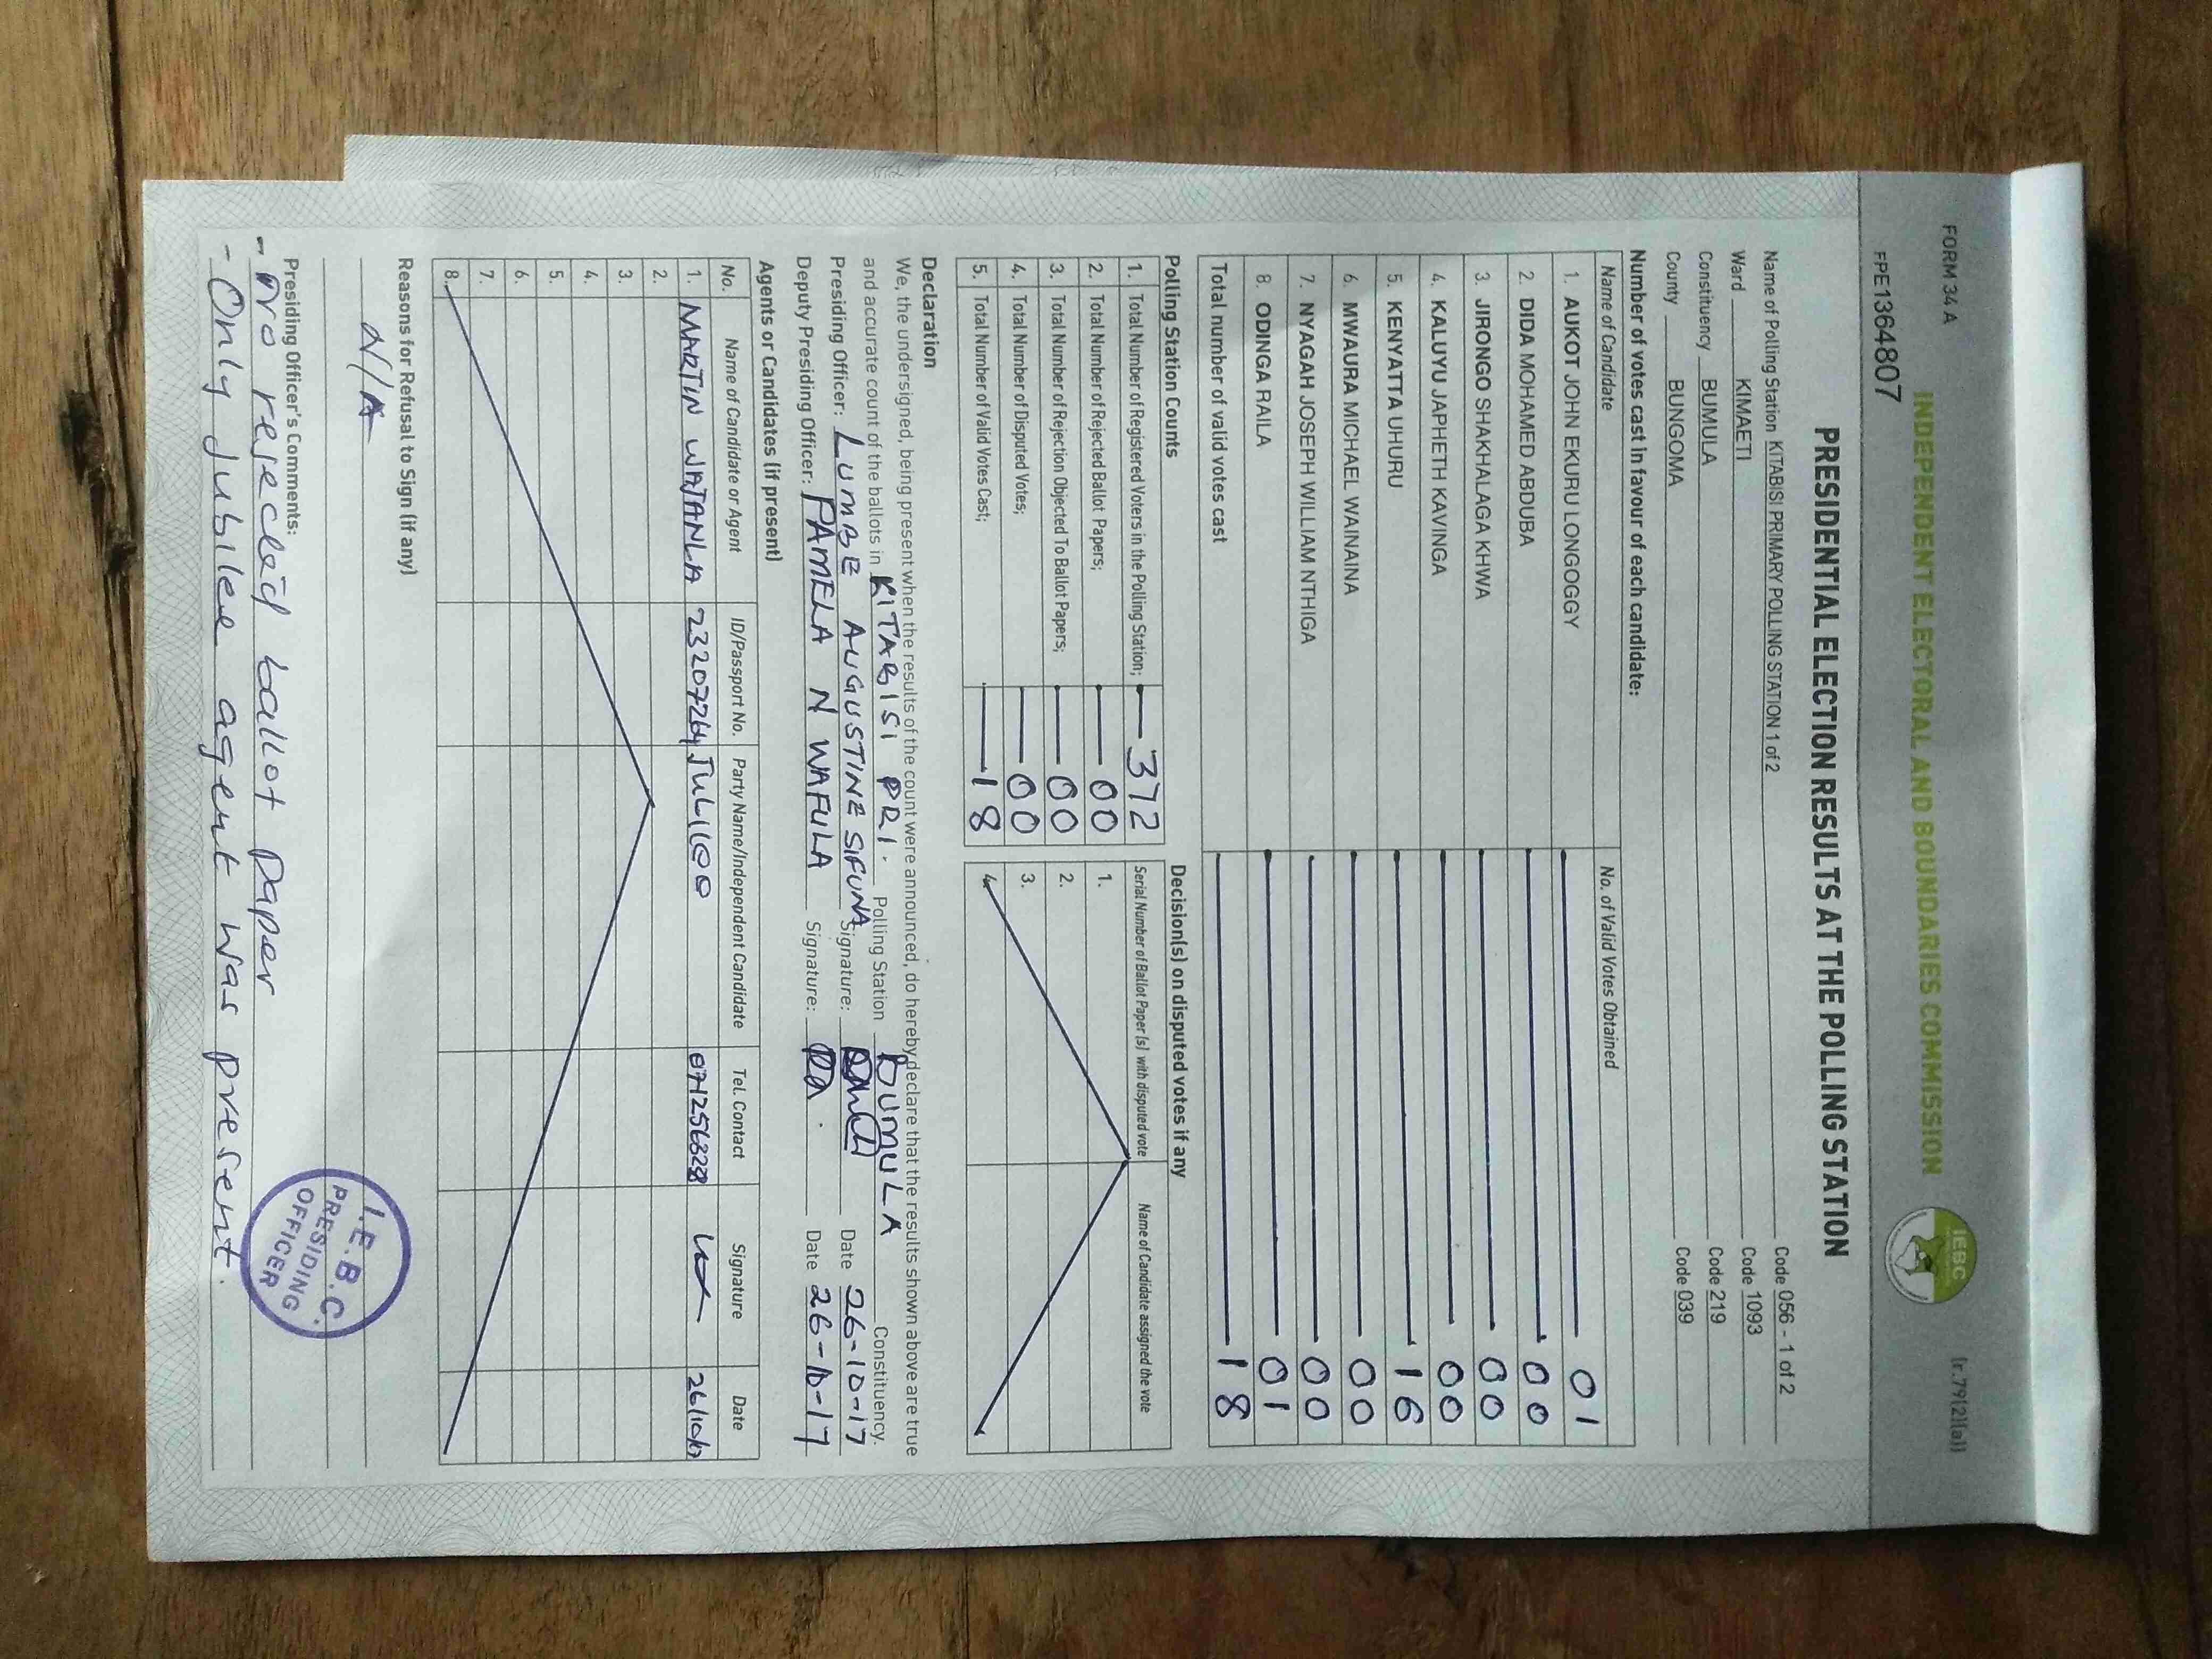 FORM 34 A
(r.79(2)(a))
INDEPENDENT ELECTORAL AND BOUNDARIES COMMISSION
IEBC
FPE1364807
PRESIDENTIAL ELECTION RESULTS AT THE POLLING STATION
Name of Polling Station KITABISI PRIMARY POLLING STATION 1 of 2 Code 056 - 1 of 2
Ward KIMAETI Code 1093
Constituency BUMULA Code 219
County BUNGOMA Code 039
Number of votes cast in favour of each candidate:
Name of Candidate No. of Valid Votes Obtained
1. AUKOT JOHN EKURU LONGOGGY 01
2. DIDA MOHAMED ABDUBA 00
3. JIRONGO SHAKHALAGA KHWA 00
4. KALUYU JAPHETH KAVINGA 00
5. KENYATTA UHURU 16
6. MWAURA MICHAEL WAINAINA 00
7. NYAGAH JOSEPH WILLIAM NTHIGA 00
8. ODINGA RAILA 01
Total number of valid votes cast 18
Polling Station Counts
1. Total Number of Registered Voters in the Polling Station; 372
2. Total Number of Rejected Ballot Papers; 00
3. Total Number of Rejection Objected To Ballot Papers; 00
4. Total Number of Disputed Votes; 00
5. Total Number of Valid Votes Cast; 18
Decision(s) on disputed votes if any
Serial Number of Ballot Paper(s) with disputed vote Name of Candidate assigned the vote
1.
2.
3.
4.
Declaration
We, the undersigned, being present when the results of the count were announced, do hereby declare that the results shown above are true
and accurate count of the ballots in KITABISI PRI. Polling Station BUMULA Constituency.
Presiding Officer: LUMBE AUGUSTINE SIFUNA Signature: Date 26-10-17
Deputy Presiding Officer: PAMELA N WAFULA Signature: Date 26-10-17
Agents or Candidates (if present)
No. Name of Candidate or Agent ID/Passport No. Party Name/Independent Candidate Tel. Contact Signature Date
1. MARTIN 0712256828 26/10/17
2.
3.
4.
5.
6.
7.
8.
Reasons for Refusal to Sign (if any)
N/A
Presiding Officer's Comments:
- No rejected ballot paper
- Only Jubilee agent was present.
I.E.B.C.
PRESIDING
OFFICER